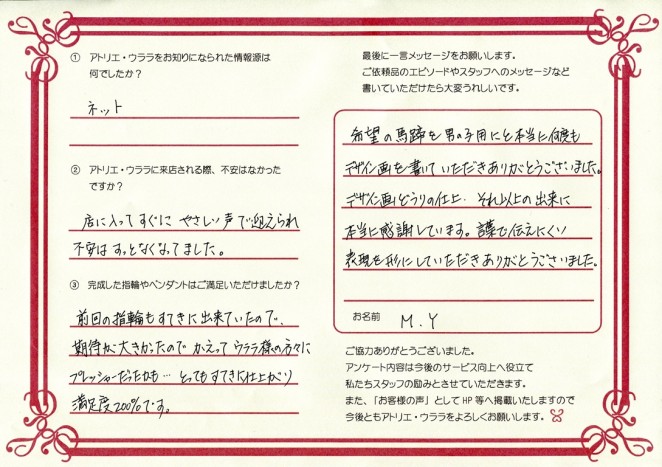 ① アトリエ・ウララをお知りになられた情報源は
何でしたか？
ネット
② アトリエ・ウララに来店される際、不安はなかった
ですか？
店に入ってすぐに やさしい声で迎えられ
不安はすっとなくなってました。
③ 完成した指輪やペンダントはご満足いただけましたか？
前回の指輪もすてきに出来ていたので、
期待が大きかったので かえって ウララ様の方々に
プレッシャーだったかも… とってもすてきに仕上がり
満足度200%です。
最後に一言メッセージをお願いします。
ご依頼品のエピソードやスタッフへのメッセージなど
書いていただけたら大変うれしいです。
希望の馬蹄を男の子用にと本当に何度も
デザイン画を書いていただきありがとうございました。
デザイン画どうりの仕上、それ以上の出来に
本当に感謝しています。言葉で伝えにくい
表現を形にしていただきありがとうございました。
お名前 M.Y
ご協力ありがとうございました。
アンケート内容は今後のサービス向上へ役立て
私たちスタッフの励みとさせていただきます。
また、「お客様の声」として HP 等へ掲載いたしますので
今後ともアトリエ・ウララをよろしくお願いします。